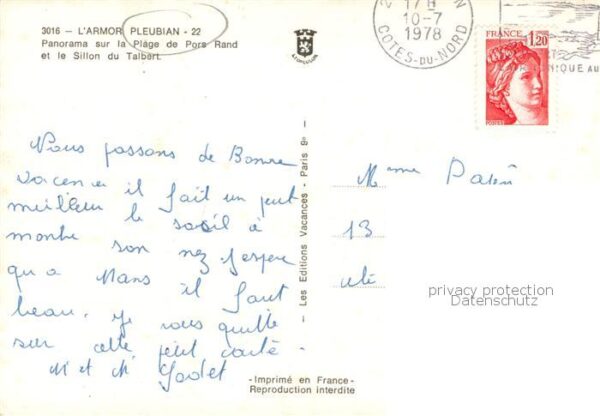 3016 - L'ARMOR PLEUBIAN - 22
Panorama sur la Plage de Pors Rand
et le Sillon du Talbert.
17 H
10-7
1978
COTES-DU-NORD
FRANCE
1,20
POSTES
NIQUE AU
Vous passons de Bonne
vacence il fait un peut
meilleur le soleil à
montre son nez. J'espere
qu a Mans il faut
beau. Je vous quitte
sur cette petit carte.
M et M Godet
- Les Editions Vacances - Paris 9e -
Mme
13
privacy protection
Datenschutz
-Imprimé en France-
Reproduction interdite